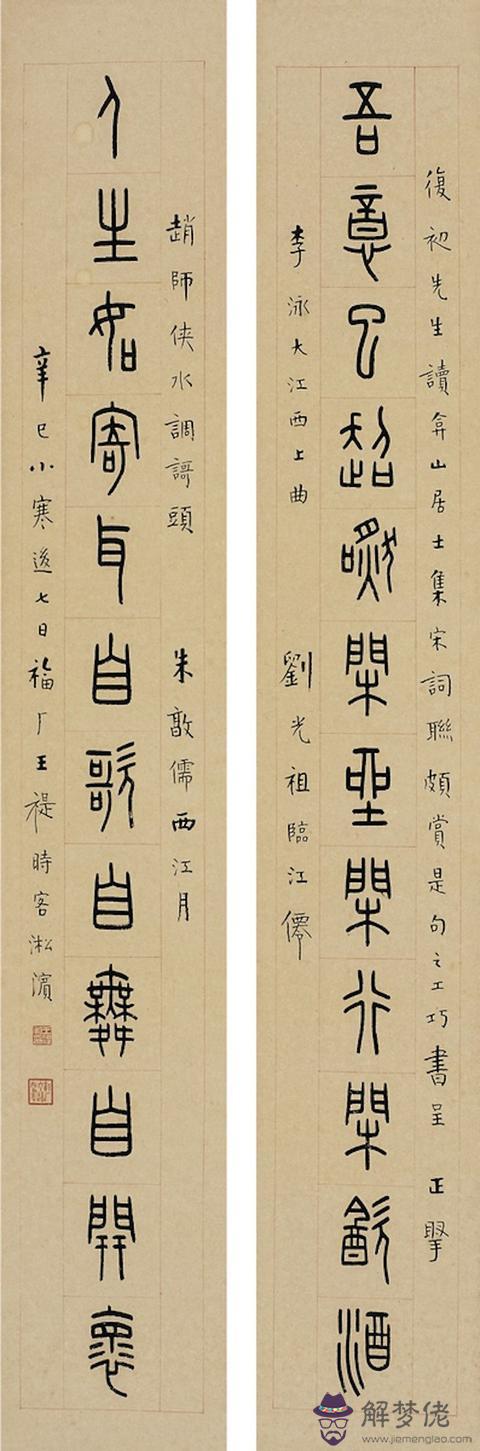 復初先生讀弇山居士集宋詞聯頗賞是句之工巧書呈 正掔
吾意已超然閑坐閑行閑飲酒
李泳大江西上曲 劉光祖臨江僊
趙師俠水調謌頭 朱敦儒西江月
人生如寄耳自歌自舞自開懷
辛巳小寒後七日福厂王禔時客淞濱
解梦佬
www.jiemenglao.com